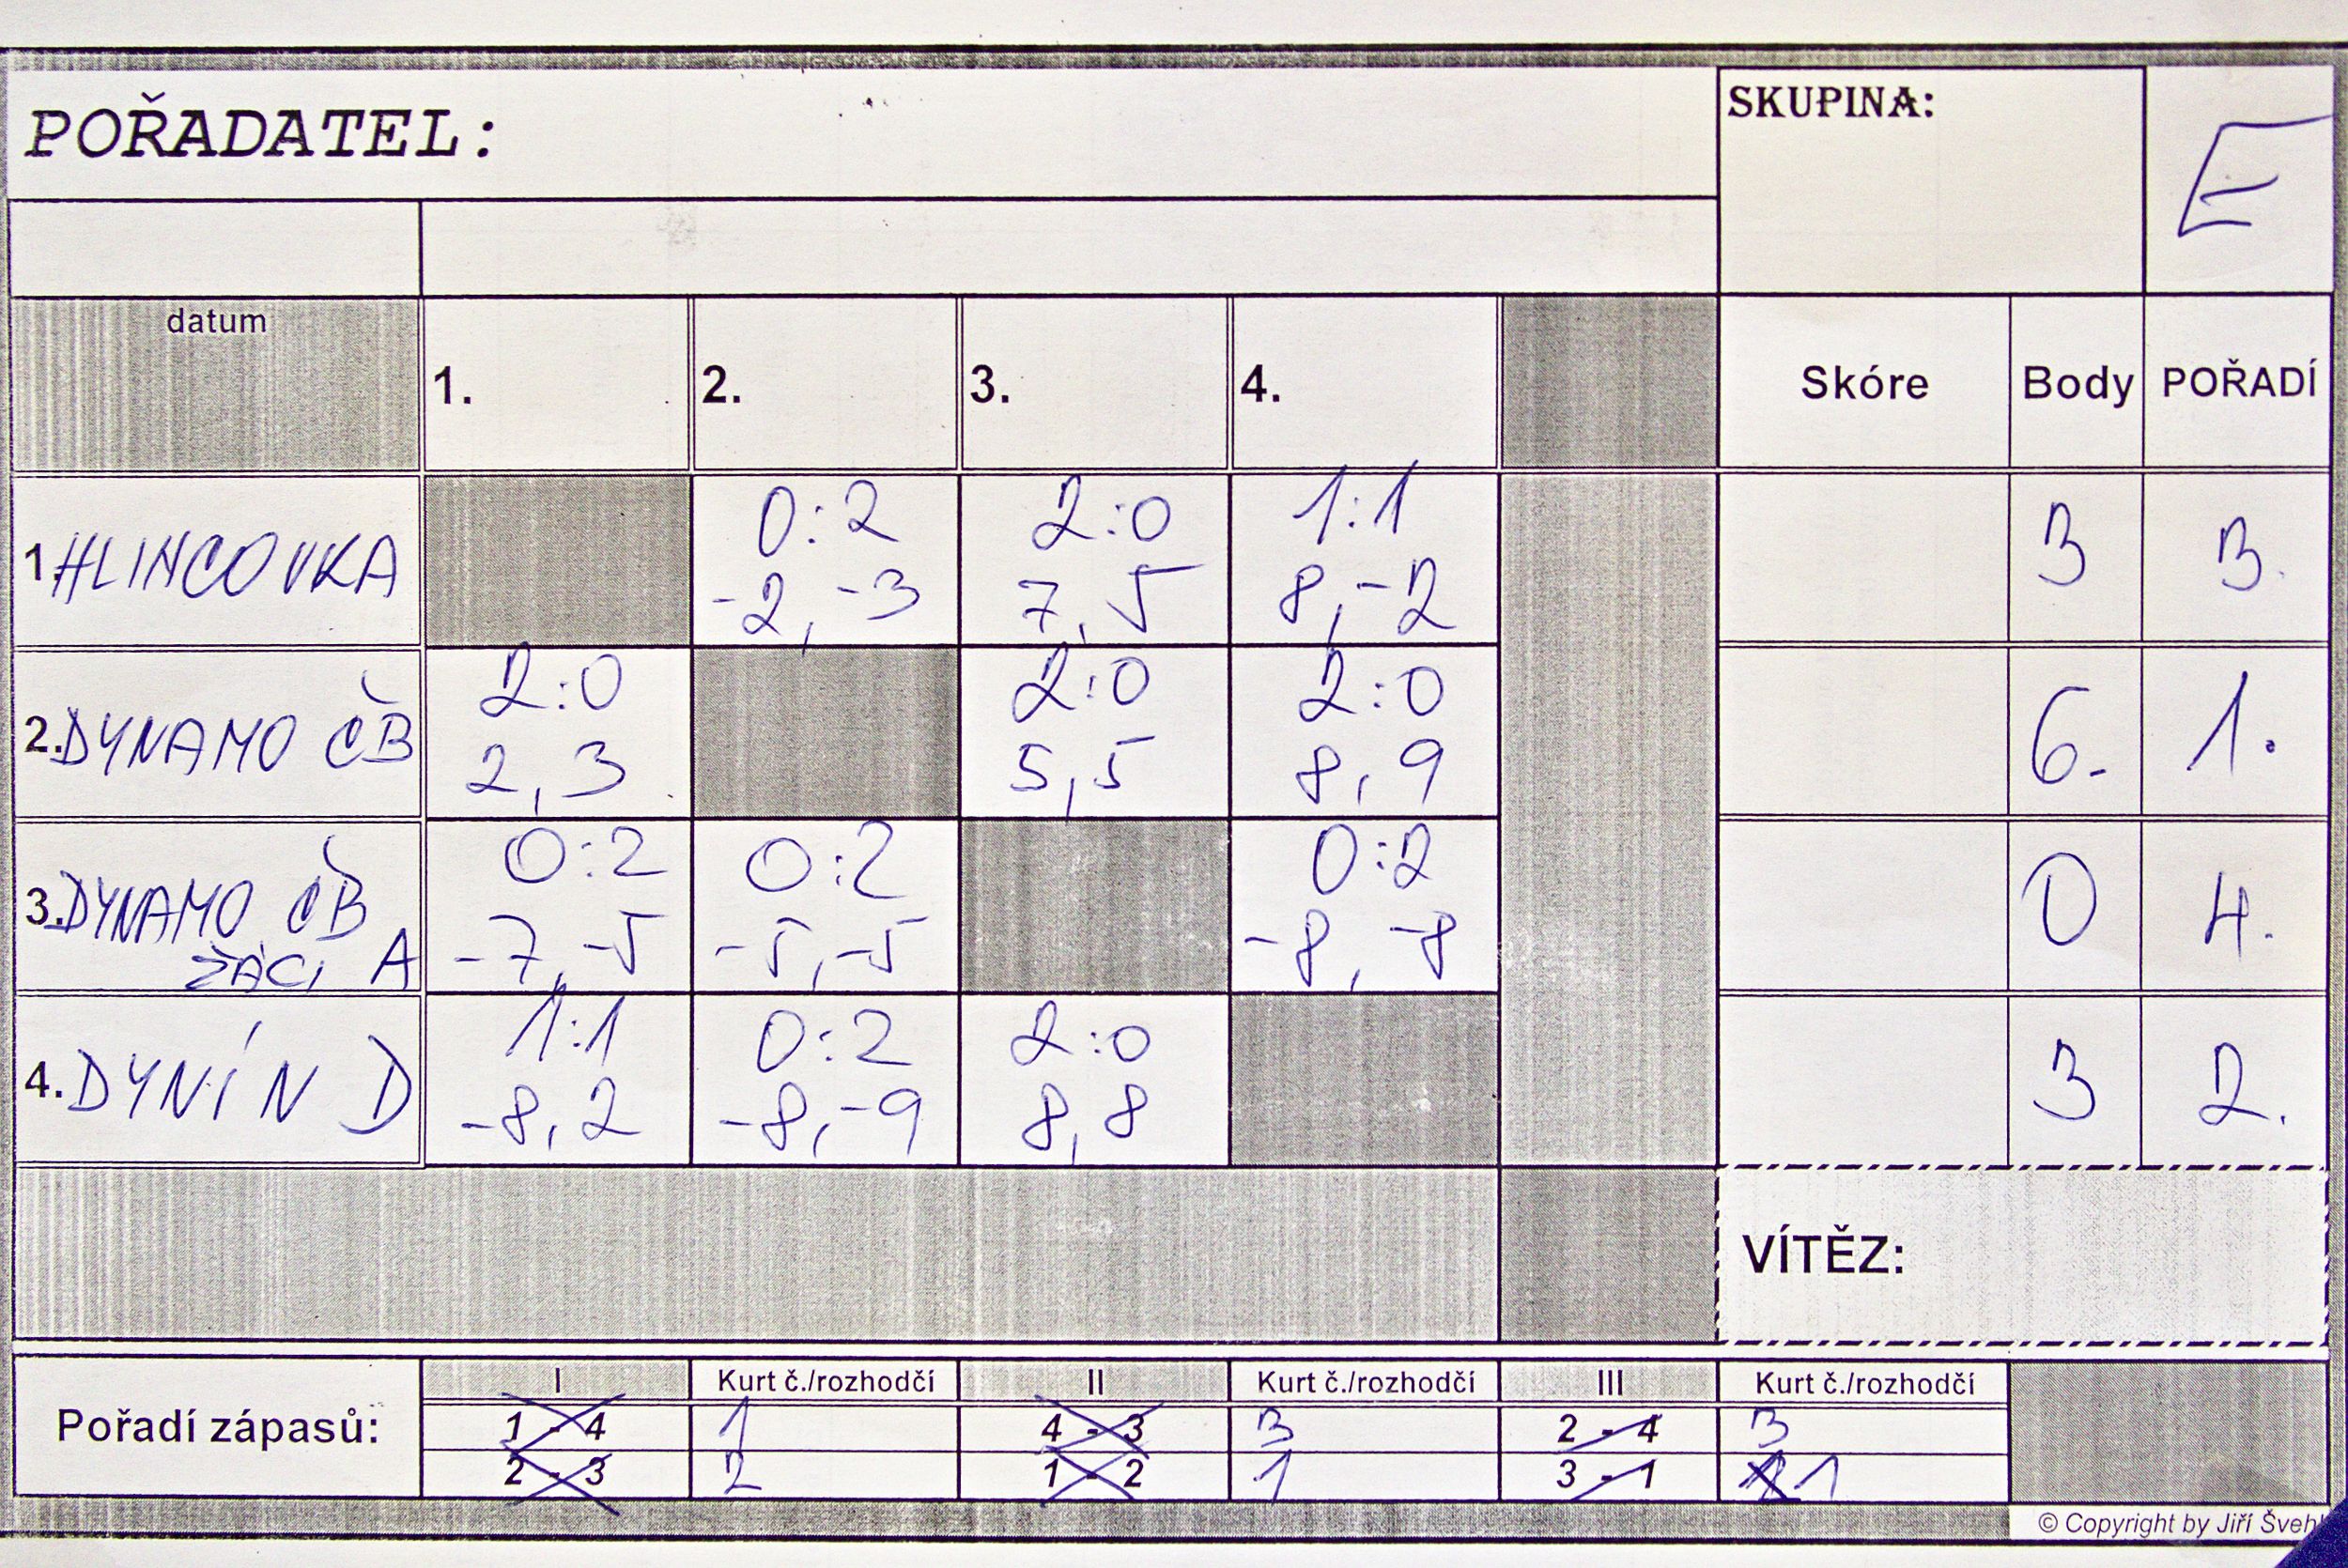 POŘADATEL:
SKUPINA: E
datum 1. 2. 3. 4. Skóre Body POŘADÍ
0:2 2:0 1:1
1. HLINCOVKA 3 3.
-2, -3 7, 5 8, -2
2:0 2:0 2:0
2. DYNAMO ČB 6. 1.
2, 3 5, 5 8, 9
0:2 0:2 0:2
3. DYNAMO ČB 0 4.
ŽÁCI A -7, -5 -5, -5 -8, -8
1:1 0:2 2:0
4. DYNÍN D 3 2.
-8, 2 -8, -9 8, 8
VÍTĚZ:
I Kurt č./rozhodčí II Kurt č./rozhodčí III Kurt č./rozhodčí
Pořadí zápasů:
1 - 4 1 4 - 3 3 2 - 4 3
2 - 3 2 1 - 2 1 3 - 1 1
© Copyright by Jiří Švehl